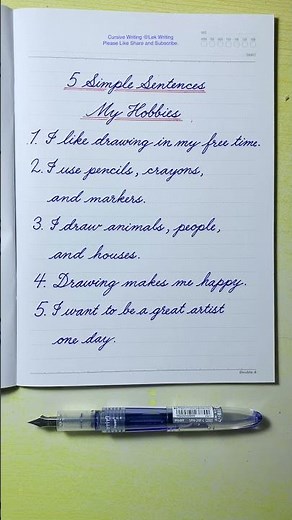 Cursive Writing @Lek Writing
Please Like Share and Subscribe
5 Simple Sentences
My Hobbies
1. I like drawing in my free time.
2. I use pencils, crayons,
and markers.
3. I draw animals, people,
and houses.
4. Drawing makes me happy.
5. I want to be a great artist
one day.